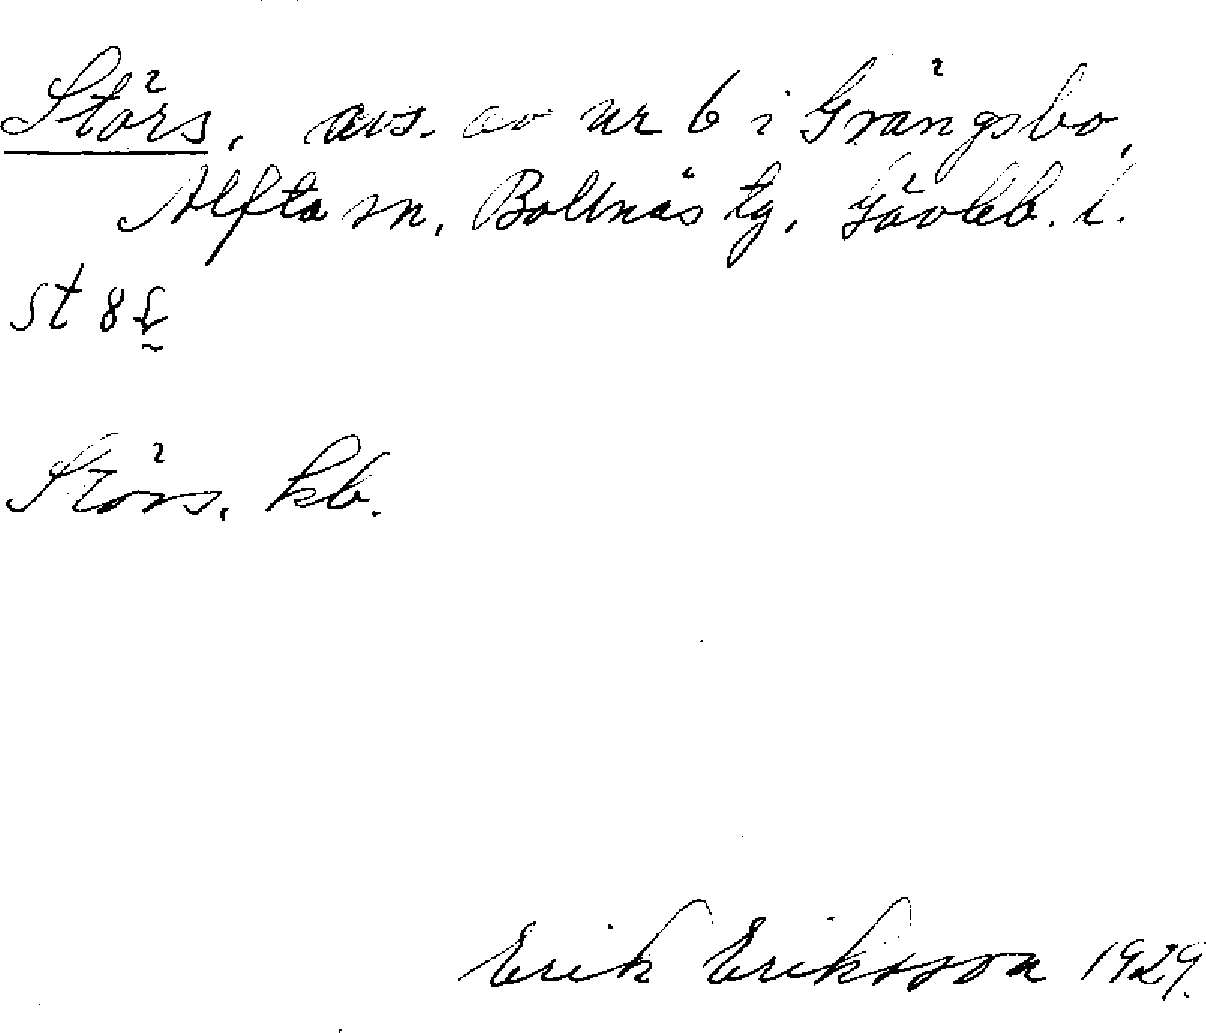 Störs, avs. av nr 6 i Grängsbo,
Alfta sn, Bollnäs tg, Gävleb. l.
st 8
Störs. kb.
Erik Eriksson 1929.